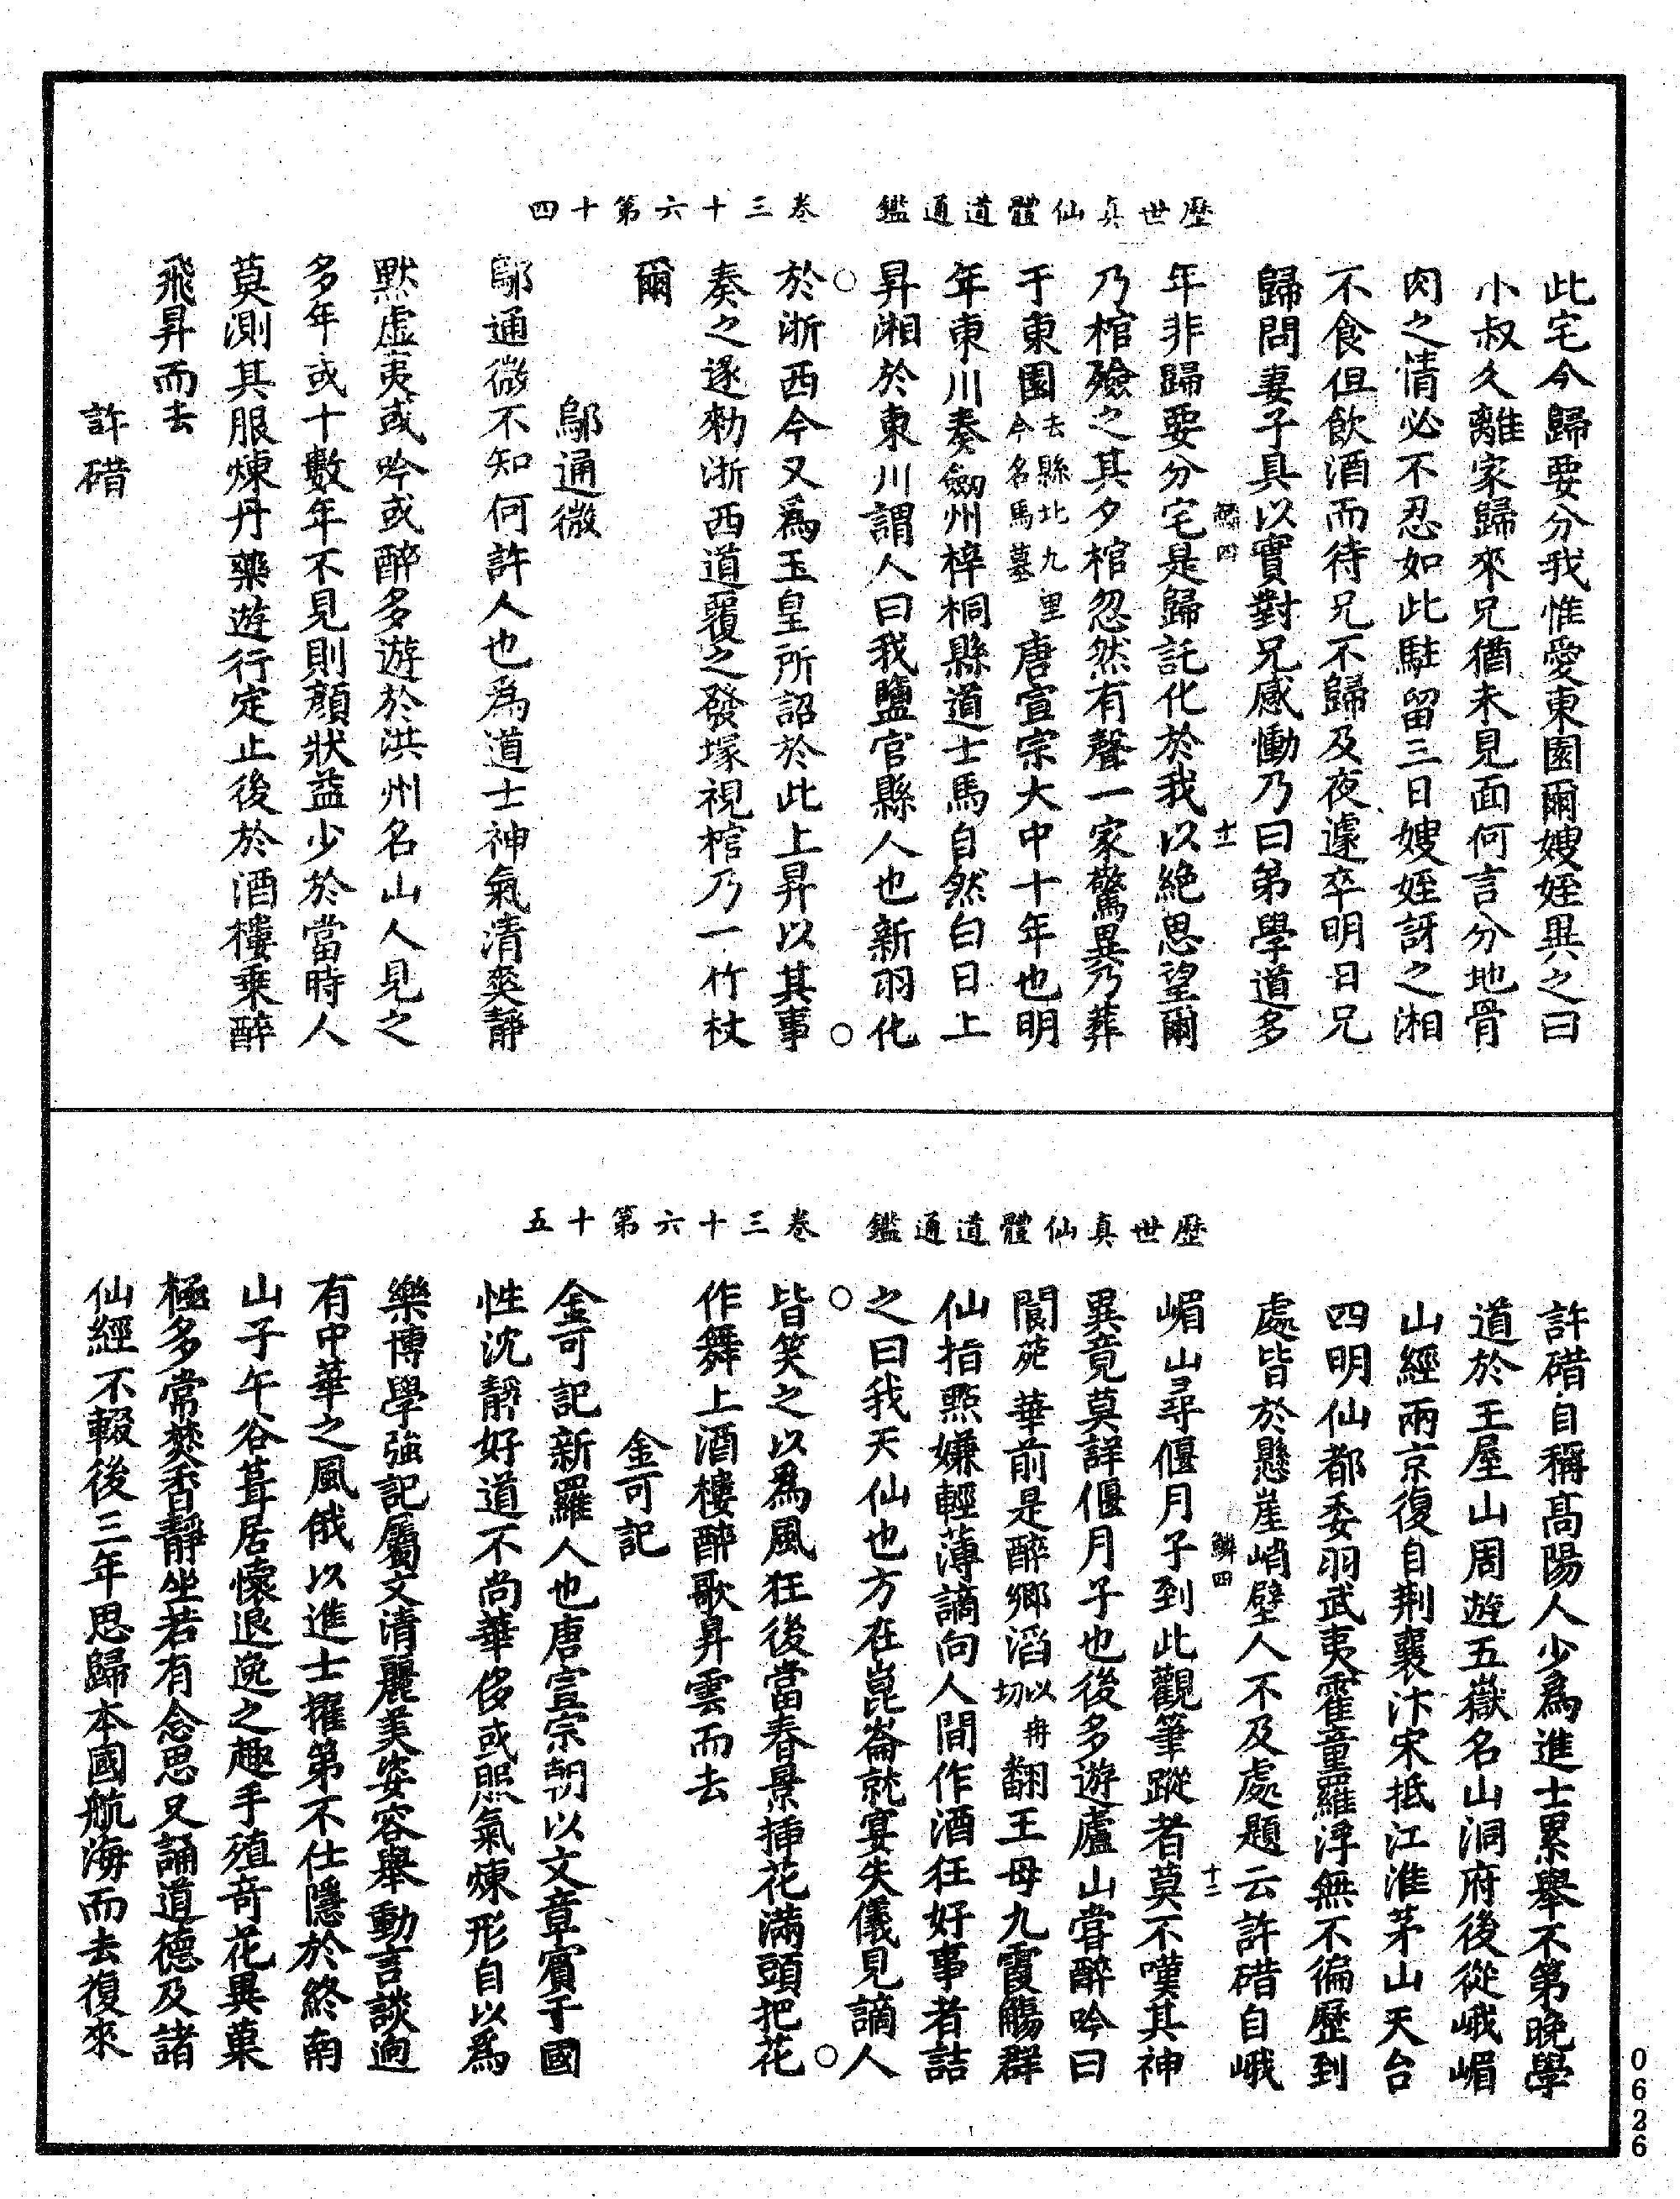 歷世真仙體道通鑑　卷三十六第十四
此宅今歸要分我惟愛東園爾嫂姪異之曰
小叔久離家歸來兄猶未見面何言分地骨
肉之情必不忍如此駐留三日嫂姪訝之湘
不食但飲酒而待兄不歸及夜遽卒明日兄
歸問妻子具以實對兄感慟乃曰弟學道多
鱗四　十一
年非歸要分宅是歸託化於我以絶思望爾
乃棺殮之其夕棺忽然有聲一家驚異乃葬
于東園去縣北九里今名馬墓唐宣宗大中十年也明
年東川奏劒州梓桐縣道士馬自然白日上
昇湘於東川謂人曰我鹽官縣人也新羽化
於浙西今又爲玉皇所詔於此上昇以其事
奏之遂勑浙西道覆之發塚視棺乃一竹杖
爾
鄔通微
鄔通微不知何許人也爲道士神氣清爽靜
默虛夷或吟或醉多遊於洪州名山人見之
多年或十數年不見則顔狀益少於當時人
莫測其服煉丹藥遊行定止後於酒樓乗醉
飛昇而去
許碏
歷世真仙體道通鑑　卷三十六第十五
許碏自稱髙陽人少爲進士累舉不第晚學
道於王屋山周遊五嶽名山洞府後從峨嵋
山經兩京復自荆襄汴宋抵江淮茅山天台
四明仙都委羽武夷霍童羅浮無不徧歷到
處皆於懸崖峭壁人不及處題云許碏自峨
鱗四　十二
嵋山尋偃月子到此觀筆蹤者莫不嘆其神
異竟莫詳偃月子也後多遊廬山嘗醉吟曰
閬苑華前是醉鄉滔以冉切翻王母九霞觴群
仙指㸃嫌輕薄謫向人間作酒狂好事者詰
之曰我天仙也方在崑崙就宴失儀見謫人
皆笑之以爲風狂後當春景挿花滿頭把花
作舞上酒樓醉歌昇雲而去
金可記
金可記新羅人也唐宣宗朝以文章賓于國
性沈靜好道不尚華侈或煕氣煉形自以爲
樂博學強記屬文清麗美姿容舉動言談逈
有中華之風俄以進士擢第不仕隱於終南
山子午谷葺居懷退逸之趣手殖奇花異菓
極多常焚香靜坐若有念思又誦道德及諸
仙經不輟後三年思歸本國航海而去復來
0626